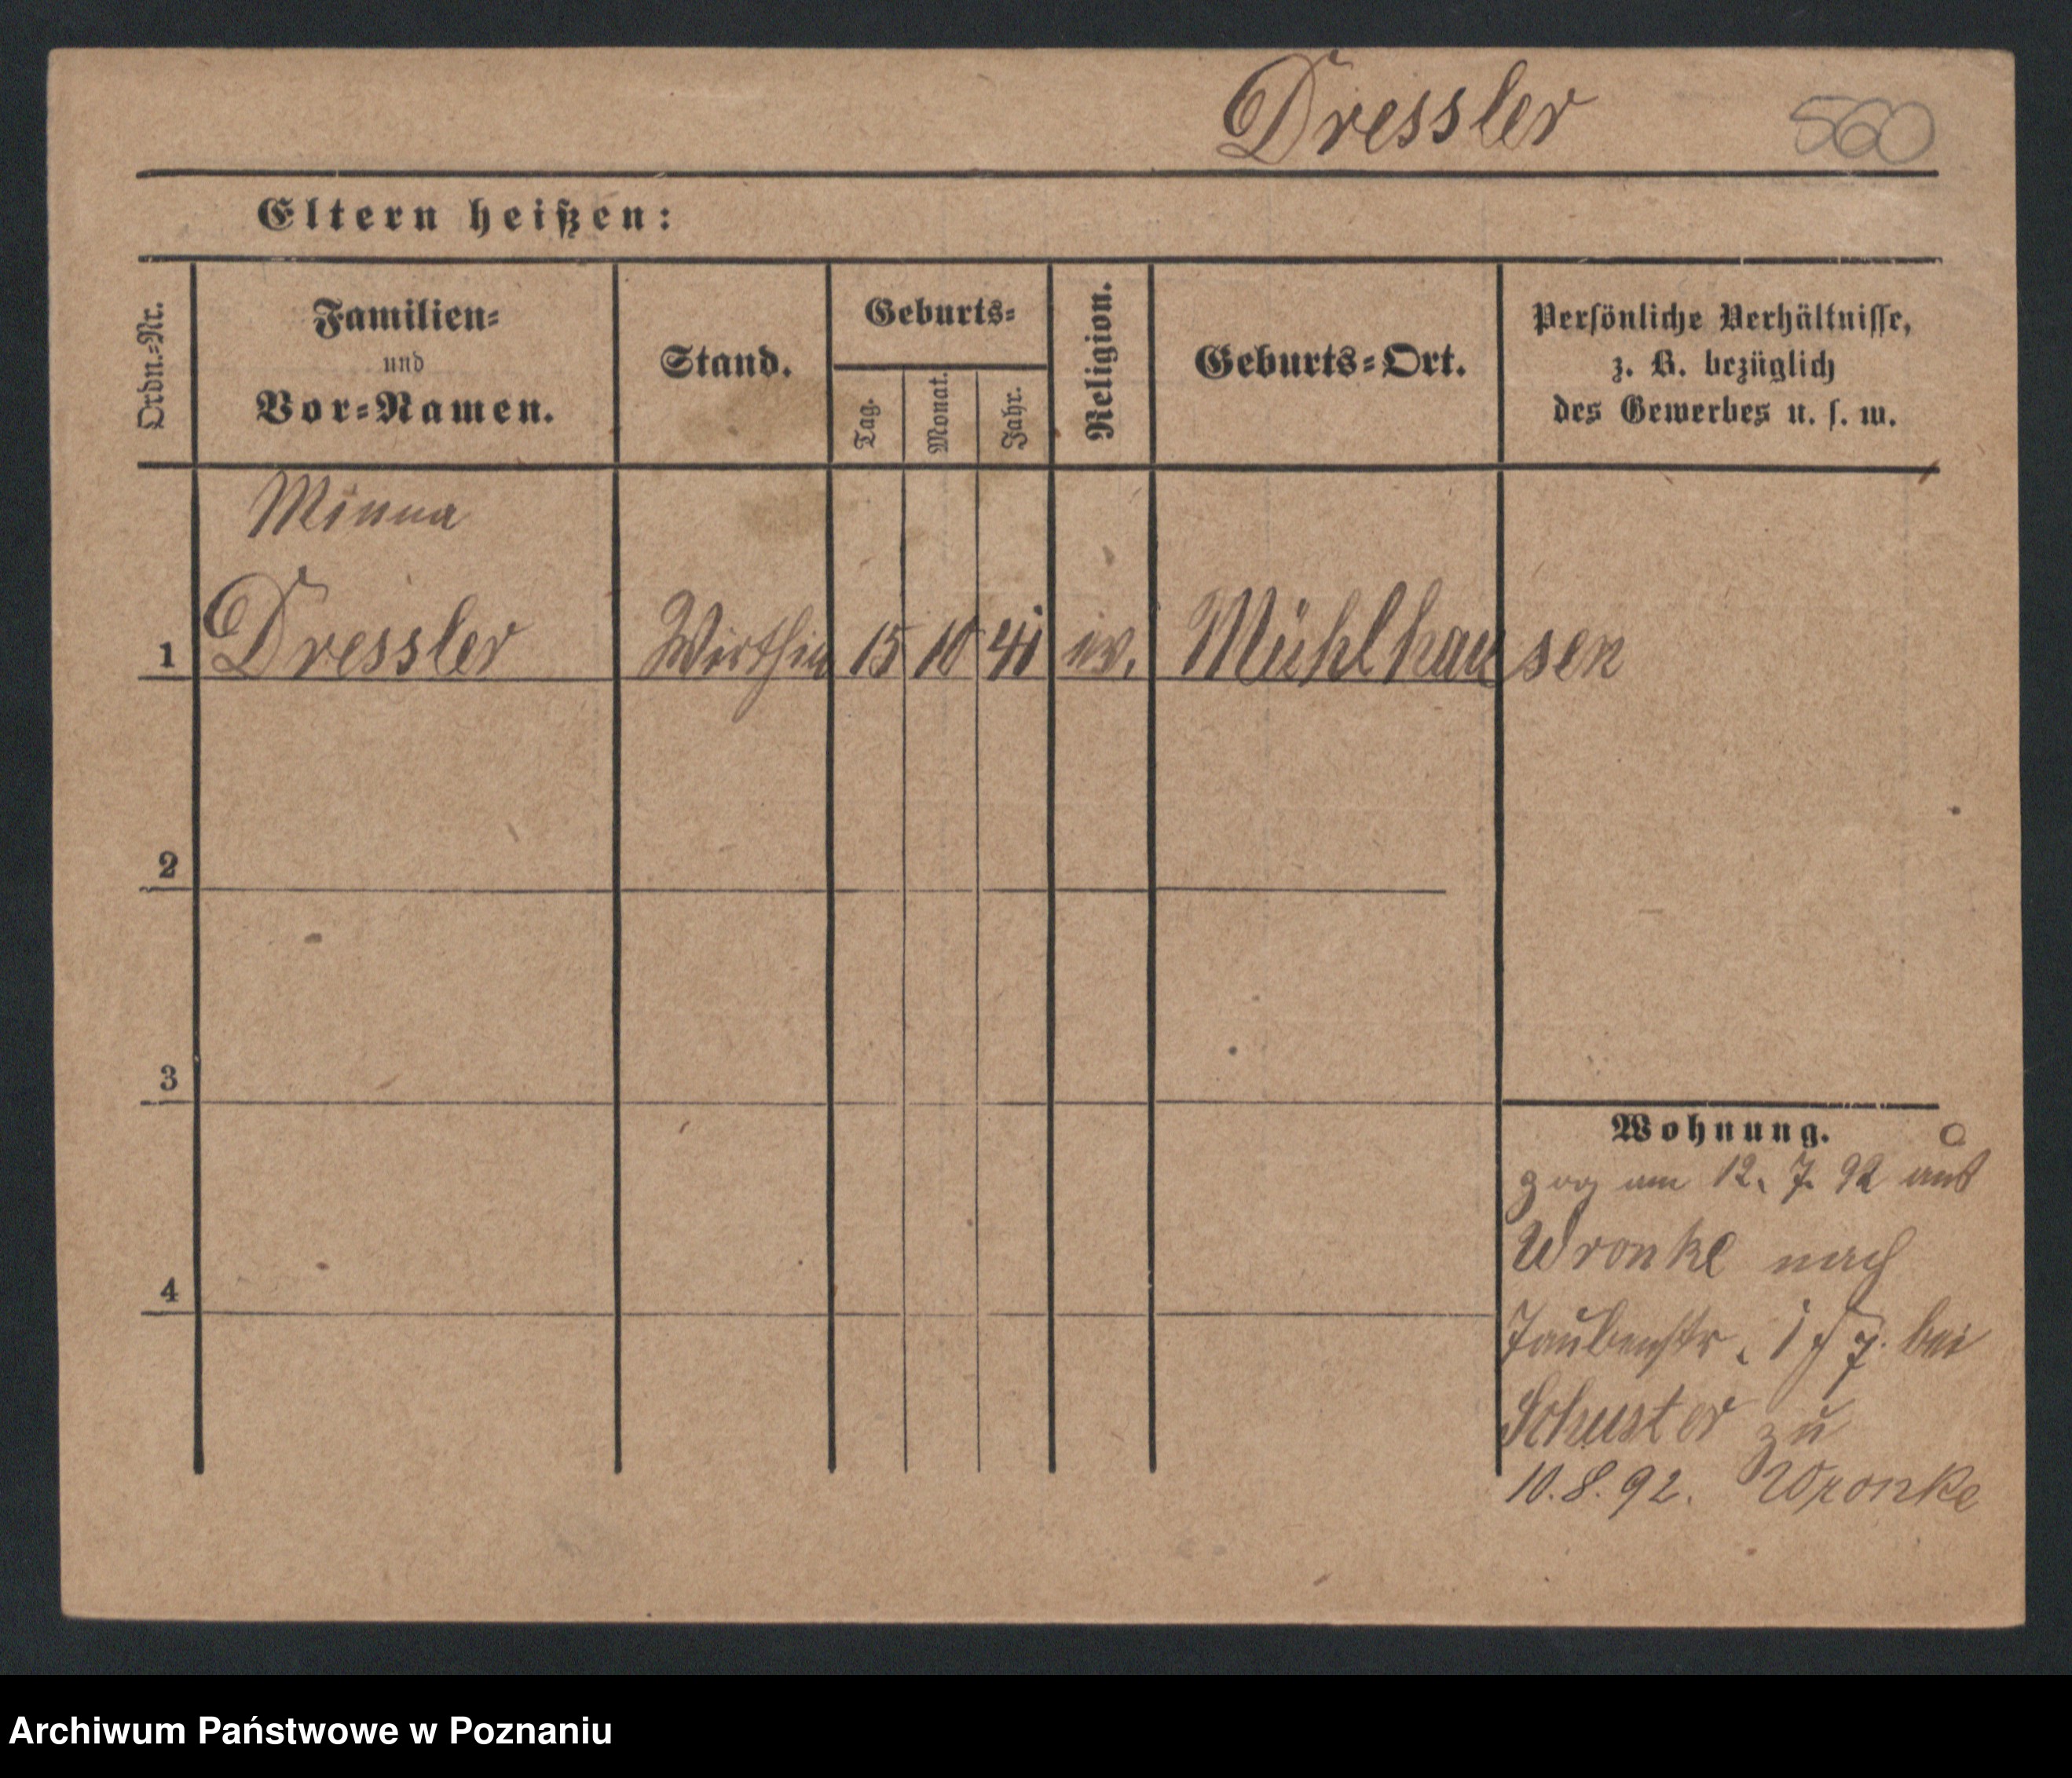 Dressler 560
Eltern heißen:
Ordn.-Nr.
Familien-
und
Vor-Namen.
Stand.
Geburts-
Tag.
Monat.
Jahr.
Religion.
Geburts-Ort.
Persönliche Verhältnisse,
z. B. bezüglich
des Gewerbes u. s. w.
Minna
1 Dressler Wirthin 15 10 41 Mühlhausen
2
3
4
Wohnung.
zog am 12. 7. 92 aus
Wronke nach
Taubenstr. 7. bei
Schuster zu
10.8.92. Wronke
Archiwum Państwowe w Poznaniu